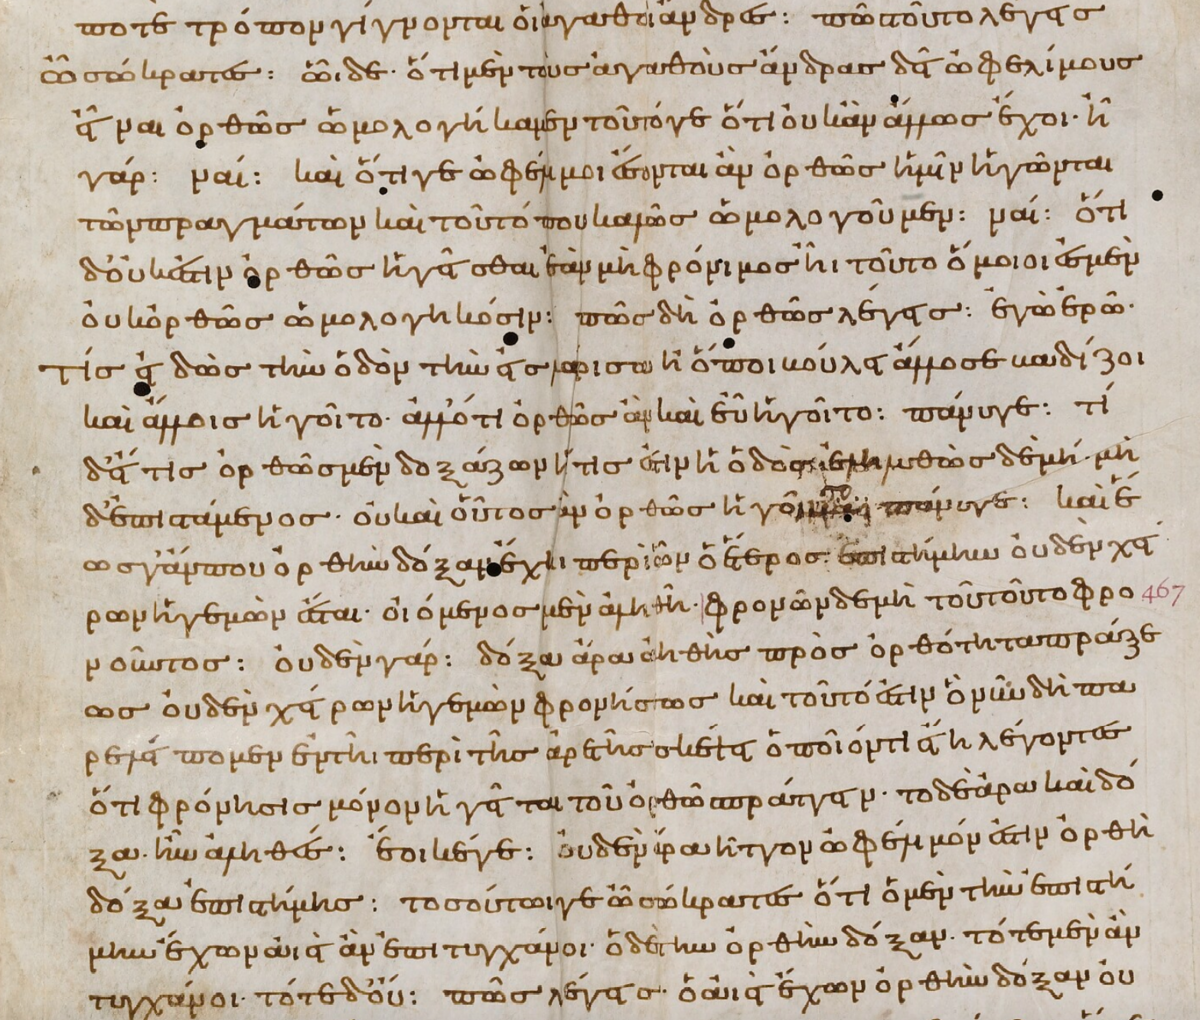 ποτε τρόπον γίγνονται ὁι ἀγαθοὶ ἄνδρες : πῶς τοῦτο λέγεις
ὦ σώκρατες : ὧδε · ὅτι μὲν τοὺς ἀγαθοὺς ἄνδρας δεῖ ὠφελίμους
εἶναι ὀρθῶς ὡμολογήκαμεν τοῦτό γε ὅτι οὐκ ἂν ἄλλως ἔχοι · ἦ
γάρ : ναί : καὶ ὅτι γε ὠφέλιμοι ἔσονται ἂν ὀρθῶς ἡμῖν ἡγῶνται
τῶν πραγμάτων καὶ τοῦτό που καλῶς ὡμολογοῦμεν : ναί : ὅτι
δ' οὐκ ἔστιν ὀρθῶς ἡγεῖσθαι ἐὰν μὴ φρόνιμος ἦι τοῦτο ὅμοιοι ἐσμὲν
οὐκ ὀρθῶς ὡμολογηκόσιν : πῶς δὴ ὀρθῶς λέγεις : ἐγὼ ἐρῶ ·
τίς εἰ δὼς τὴν ὁδὸν τὴν εἰς λάρισαν ἢ ὅποι βούλει ἄλλοσε βαδίζοι
καὶ ἄλλοις ἡγοῖτο · ἄλλό τι ὀρθῶς ἂν καὶ εὖ ἡγοῖτο : πάνυ γε : τί
δ' εἴ τις ὀρθῶς μὲν δοξάζων ἥτις ἐστιν ἡ ὁδὸς ἐληλυθὼς δὲ μὴ · μὴ
δ' ἐπιστάμενος · οὐ καὶ οὗτος ἂν ὀρθῶς ἡγοῖτο πάνυ γε : καὶ ἕ
ως γ' ἄν που ὀρθὴν δόξαν ἔχηι περὶ ὧν ὁ ἕτερος ἐπιστήμην οὐδὲν χεί
ρων ἡγεμὼν ἔσται · οἰόμενος μὲν ἀληθῆ · φρονῶν δὲ μὴ τοῦ τοῦτο φρο 467
νοῦντος : οὐδὲν γάρ : δόξα ἄρα ἀληθὴς πρὸς ὀρθότητα πράξε
ως οὐδὲν χείρων ἡγεμὼν φρονήσεως καὶ τοῦτό ἐστιν ὃ νῦν δὴ πα
ρελείπομεν ἐν τῆι περὶ τῆς ἀρετῆς σκέψει ὁποῖόν τι εἴη λέγοντες
ὅτι φρόνησις μόνον ἡγεῖται τοῦ ὀρθῶς πράττειν · τὸ δὲ ἄρα καὶ δό
ξα · ἦν ἀληθές : ἔοικέ γε : οὐδὲν ἄρα ἧττον ὠφέλιμόν ἐστιν ὀρθὴ
δόξα ἐπιστήμης : τοσούτωι γε ὦ σώκρατες ὅτι ὁ μὲν τὴν ἐπιστή
μην ἔχων αἰεὶ ἂν ἐπιτυγχάνοι · ὁ δὲ τὴν ὀρθὴν δόξαν · τότε μὲν ἂν
τυγχάνοι · τότε δ' οὔ : πῶς λέγεις · ὁ αἰεὶ ἔχων ὀρθὴν δόξαν οὐ